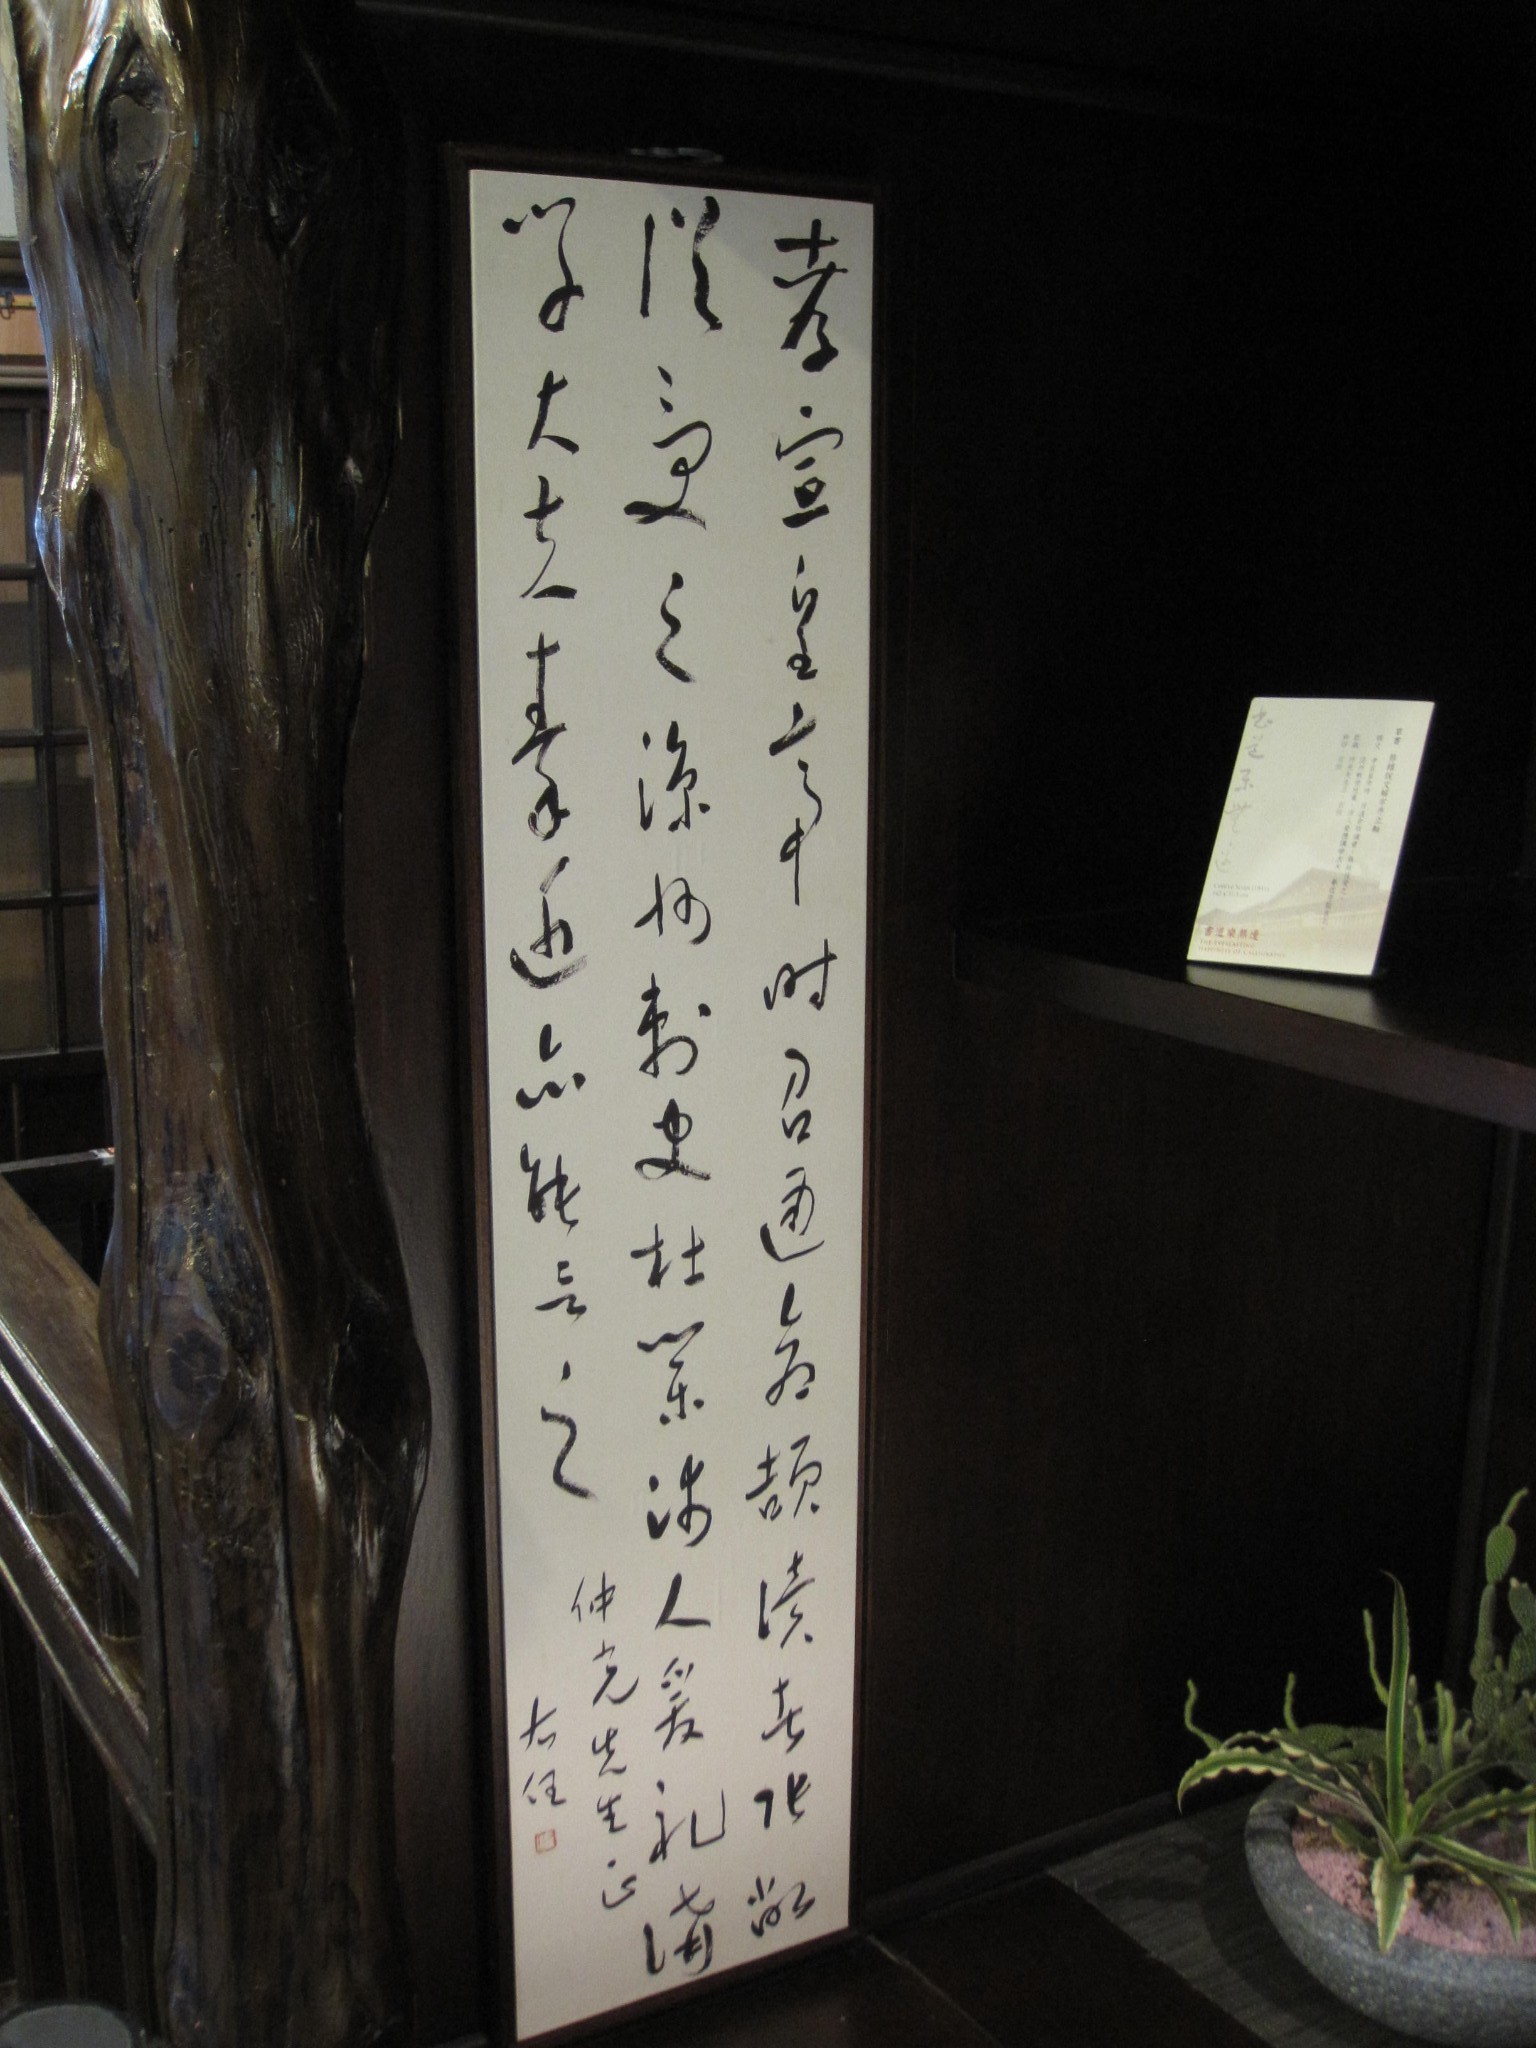 孝宣皇帝时召通倉頡讀者張敞
從受之涼州刺史杜業沛人爰礼講
學大夫秦近亦能言之
仲光先生正
右任
書道樂無邊